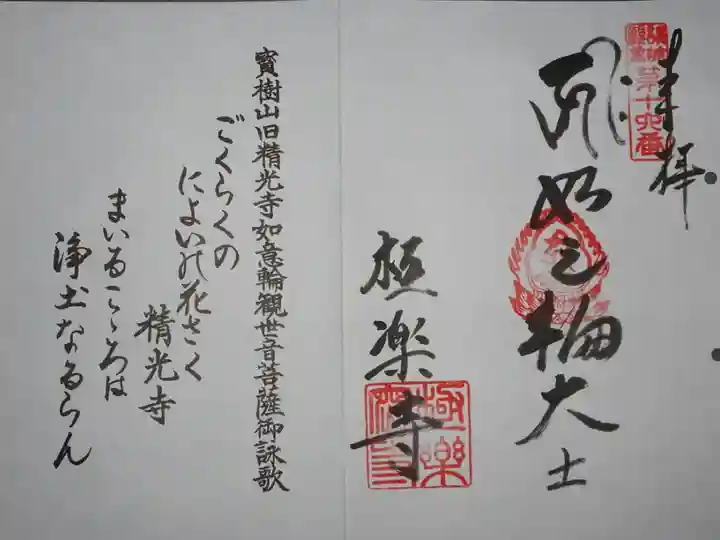 奉拝
第十六番
如意輪大士
極楽寺
極楽寺
寳樹山旧精光寺如意輪観世音菩薩御詠歌
ごくらくの
によいの花さく
精光寺
まいるこゝろは
浄土なるらん